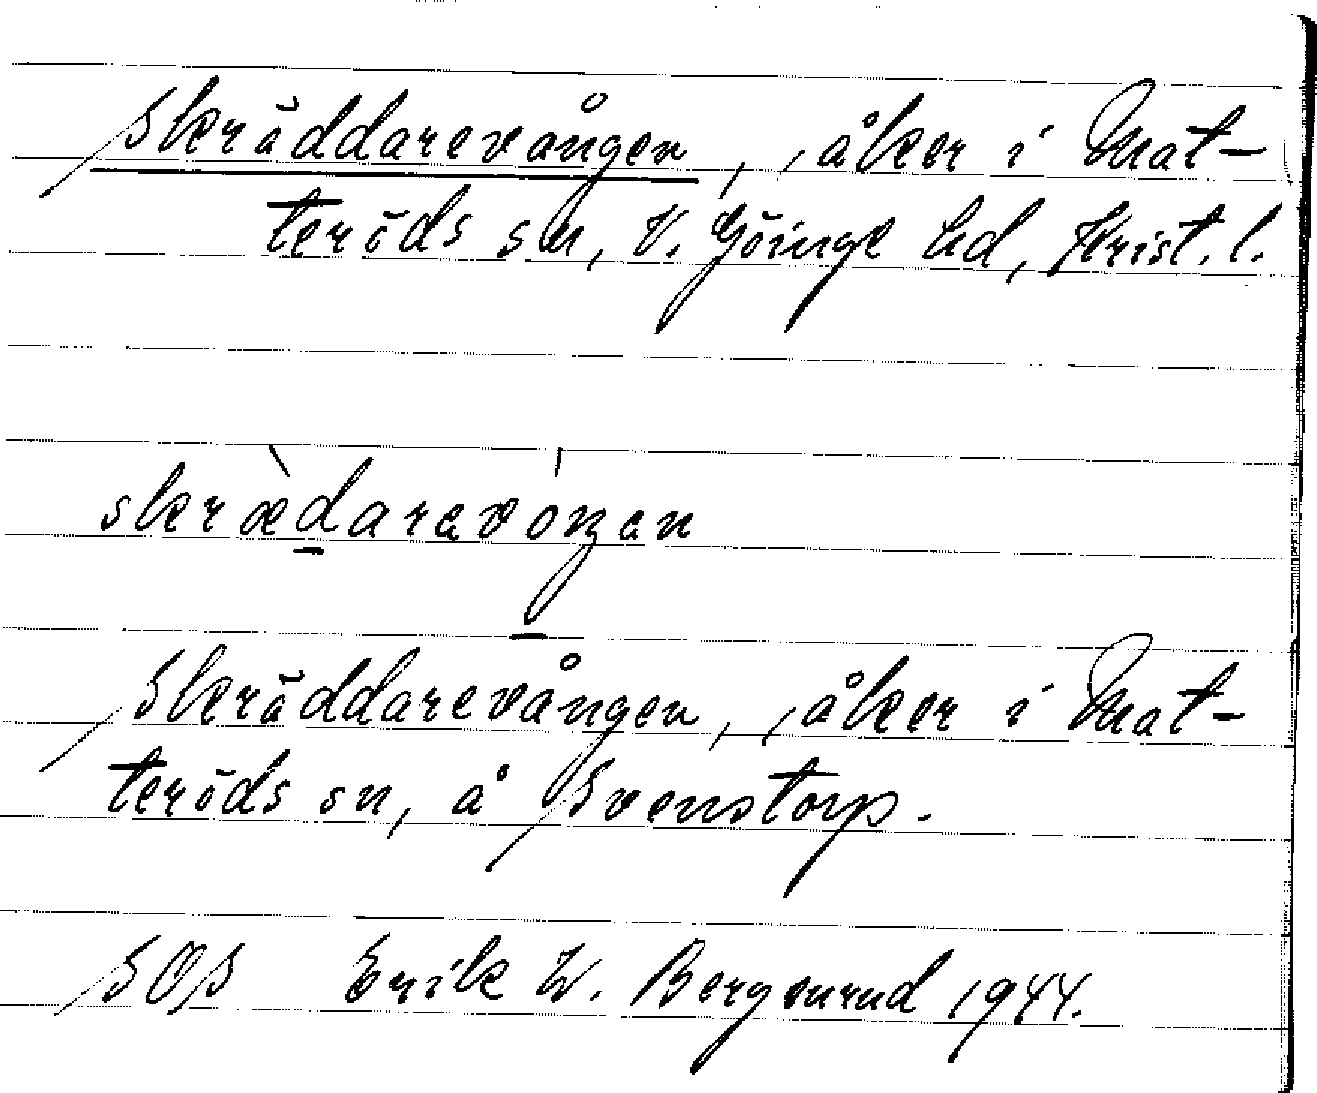 Skräddarevången, , åker i Mat-
teröds sn, V. Göinge hd, Krist. l.
skræ̀daravóŋan
Skräddarevången, , åker i Mat-
teröds sn, å Svenstorp.
SOS Erik W. Bergenrud 1944.